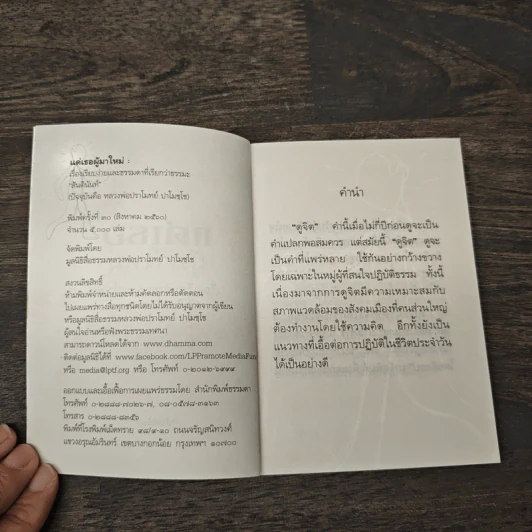 แด่เธอผู้มาใหม่ :
เรื่องเรียบง่ายและธรรมดาที่เรียกว่าธรรมะ
“สันตินันท์”
(ปัจจุบันคือ หลวงพ่อปราโมทย์ ปาโมชฺโช)
พิมพ์ครั้งที่ ๓๐ (สิงหาคม ๒๕๖๐)
จำนวน ๕,๐๐๐ เล่ม
จัดพิมพ์โดย
มูลนิธิสื่อธรรมหลวงพ่อปราโมทย์ ปาโมชฺโช
สงวนลิขสิทธิ์
ห้ามพิมพ์จำหน่ายและห้ามคัดลอกหรือตัดตอน
ไปเผยแพร่ทางสื่อทุกชนิดโดยไม่ได้รับอนุญาตจากผู้เขียน
หรือมูลนิธิสื่อธรรมหลวงพ่อปราโมทย์ ปาโมชฺโช
ผู้สนใจอ่านหรือฟังพระธรรมเทศนา
สามารถดาวน์โหลดได้จาก www.dhamma.com
ติดต่อมูลนิธิได้ที่ www.facebook.com/LPPramoteMediaFund
หรือ media@lptf.org หรือ โทรศัพท์ ๐-๒๐๑๒-๖๙๙๙
ออกแบบและเอื้อเฟื้อการเผยแพร่ธรรมโดย สำนักพิมพ์ธรรมดา
โทรศัพท์ ๐-๒๘๘๘-๗๐๒๖-๗, ๐๘-๐๕๗๘-๓๑๖๓
โทรสาร ๐-๒๘๘๘-๘๓๕๖
พิมพ์ที่โรงพิมพ์เม็ดทราย ๔๘/๙-๑๐ ถนนจรัญสนิทวงศ์
แขวงอรุณอัมรินทร์ เขตบางกอกน้อย กรุงเทพฯ ๑๐๗๐๐
คำนำ
“ดูจิต” คำนี้เมื่อไม่กี่ปีก่อนดูจะเป็น
คำแปลกพอสมควร แต่สมัยนี้ “ดูจิต” ดูจะ
เป็นคำที่แพร่หลาย ใช้กันอย่างกว้างขวาง
โดยเฉพาะในหมู่ผู้ที่สนใจปฏิบัติธรรม ทั้งนี้
เนื่องมาจากการดูจิตมีความเหมาะสมกับ
สภาพแวดล้อมของสังคมเมืองที่คนส่วนใหญ่
ต้องทำงานโดยใช้ความคิด อีกทั้งยังเป็น
แนวทางที่เอื้อต่อการปฏิบัติในชีวิตประจำวัน
ได้เป็นอย่างดี